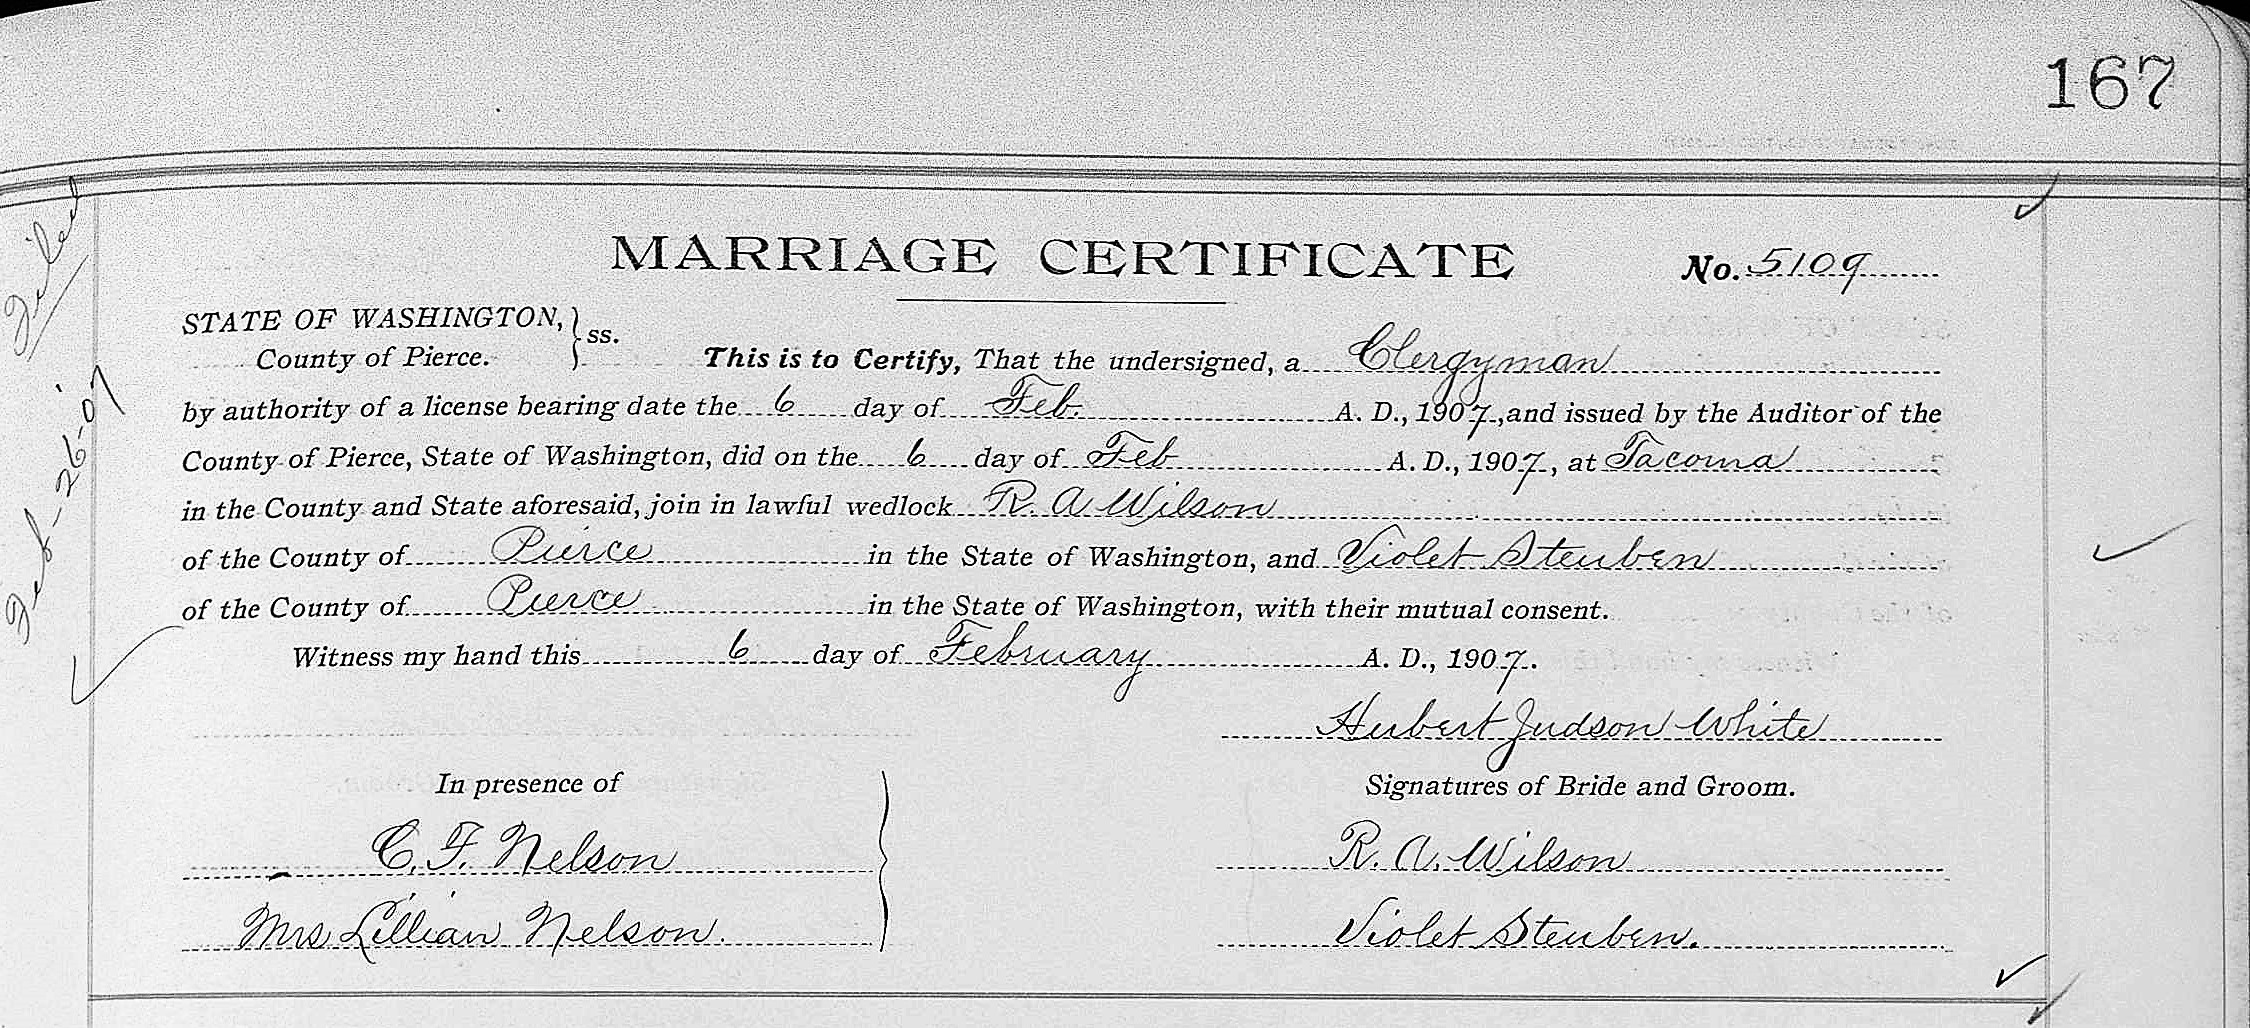 167
MARRIAGE CERTIFICATE No. 5109
STATE OF WASHINGTON, } ss.
County of Pierce. This is to Certify, That the undersigned, a Clergyman
by authority of a license bearing date the 6 day of Feb. A. D., 1907, and issued by the Auditor of the
County of Pierce, State of Washington, did on the 6 day of Feb A. D., 1907, at Tacoma
in the County and State aforesaid, join in lawful wedlock R. A Wilson
of the County of Pierce in the State of Washington, and Violet Steuben
of the County of Pierce in the State of Washington, with their mutual consent.
Witness my hand this 6 day of February A. D., 1907.
Hubert Judson White
In presence of Signatures of Bride and Groom.
C. F. Nelson R. A. Wilson
Mrs Lillian Nelson. Violet Steuben.
Filed
Feb-26-'07